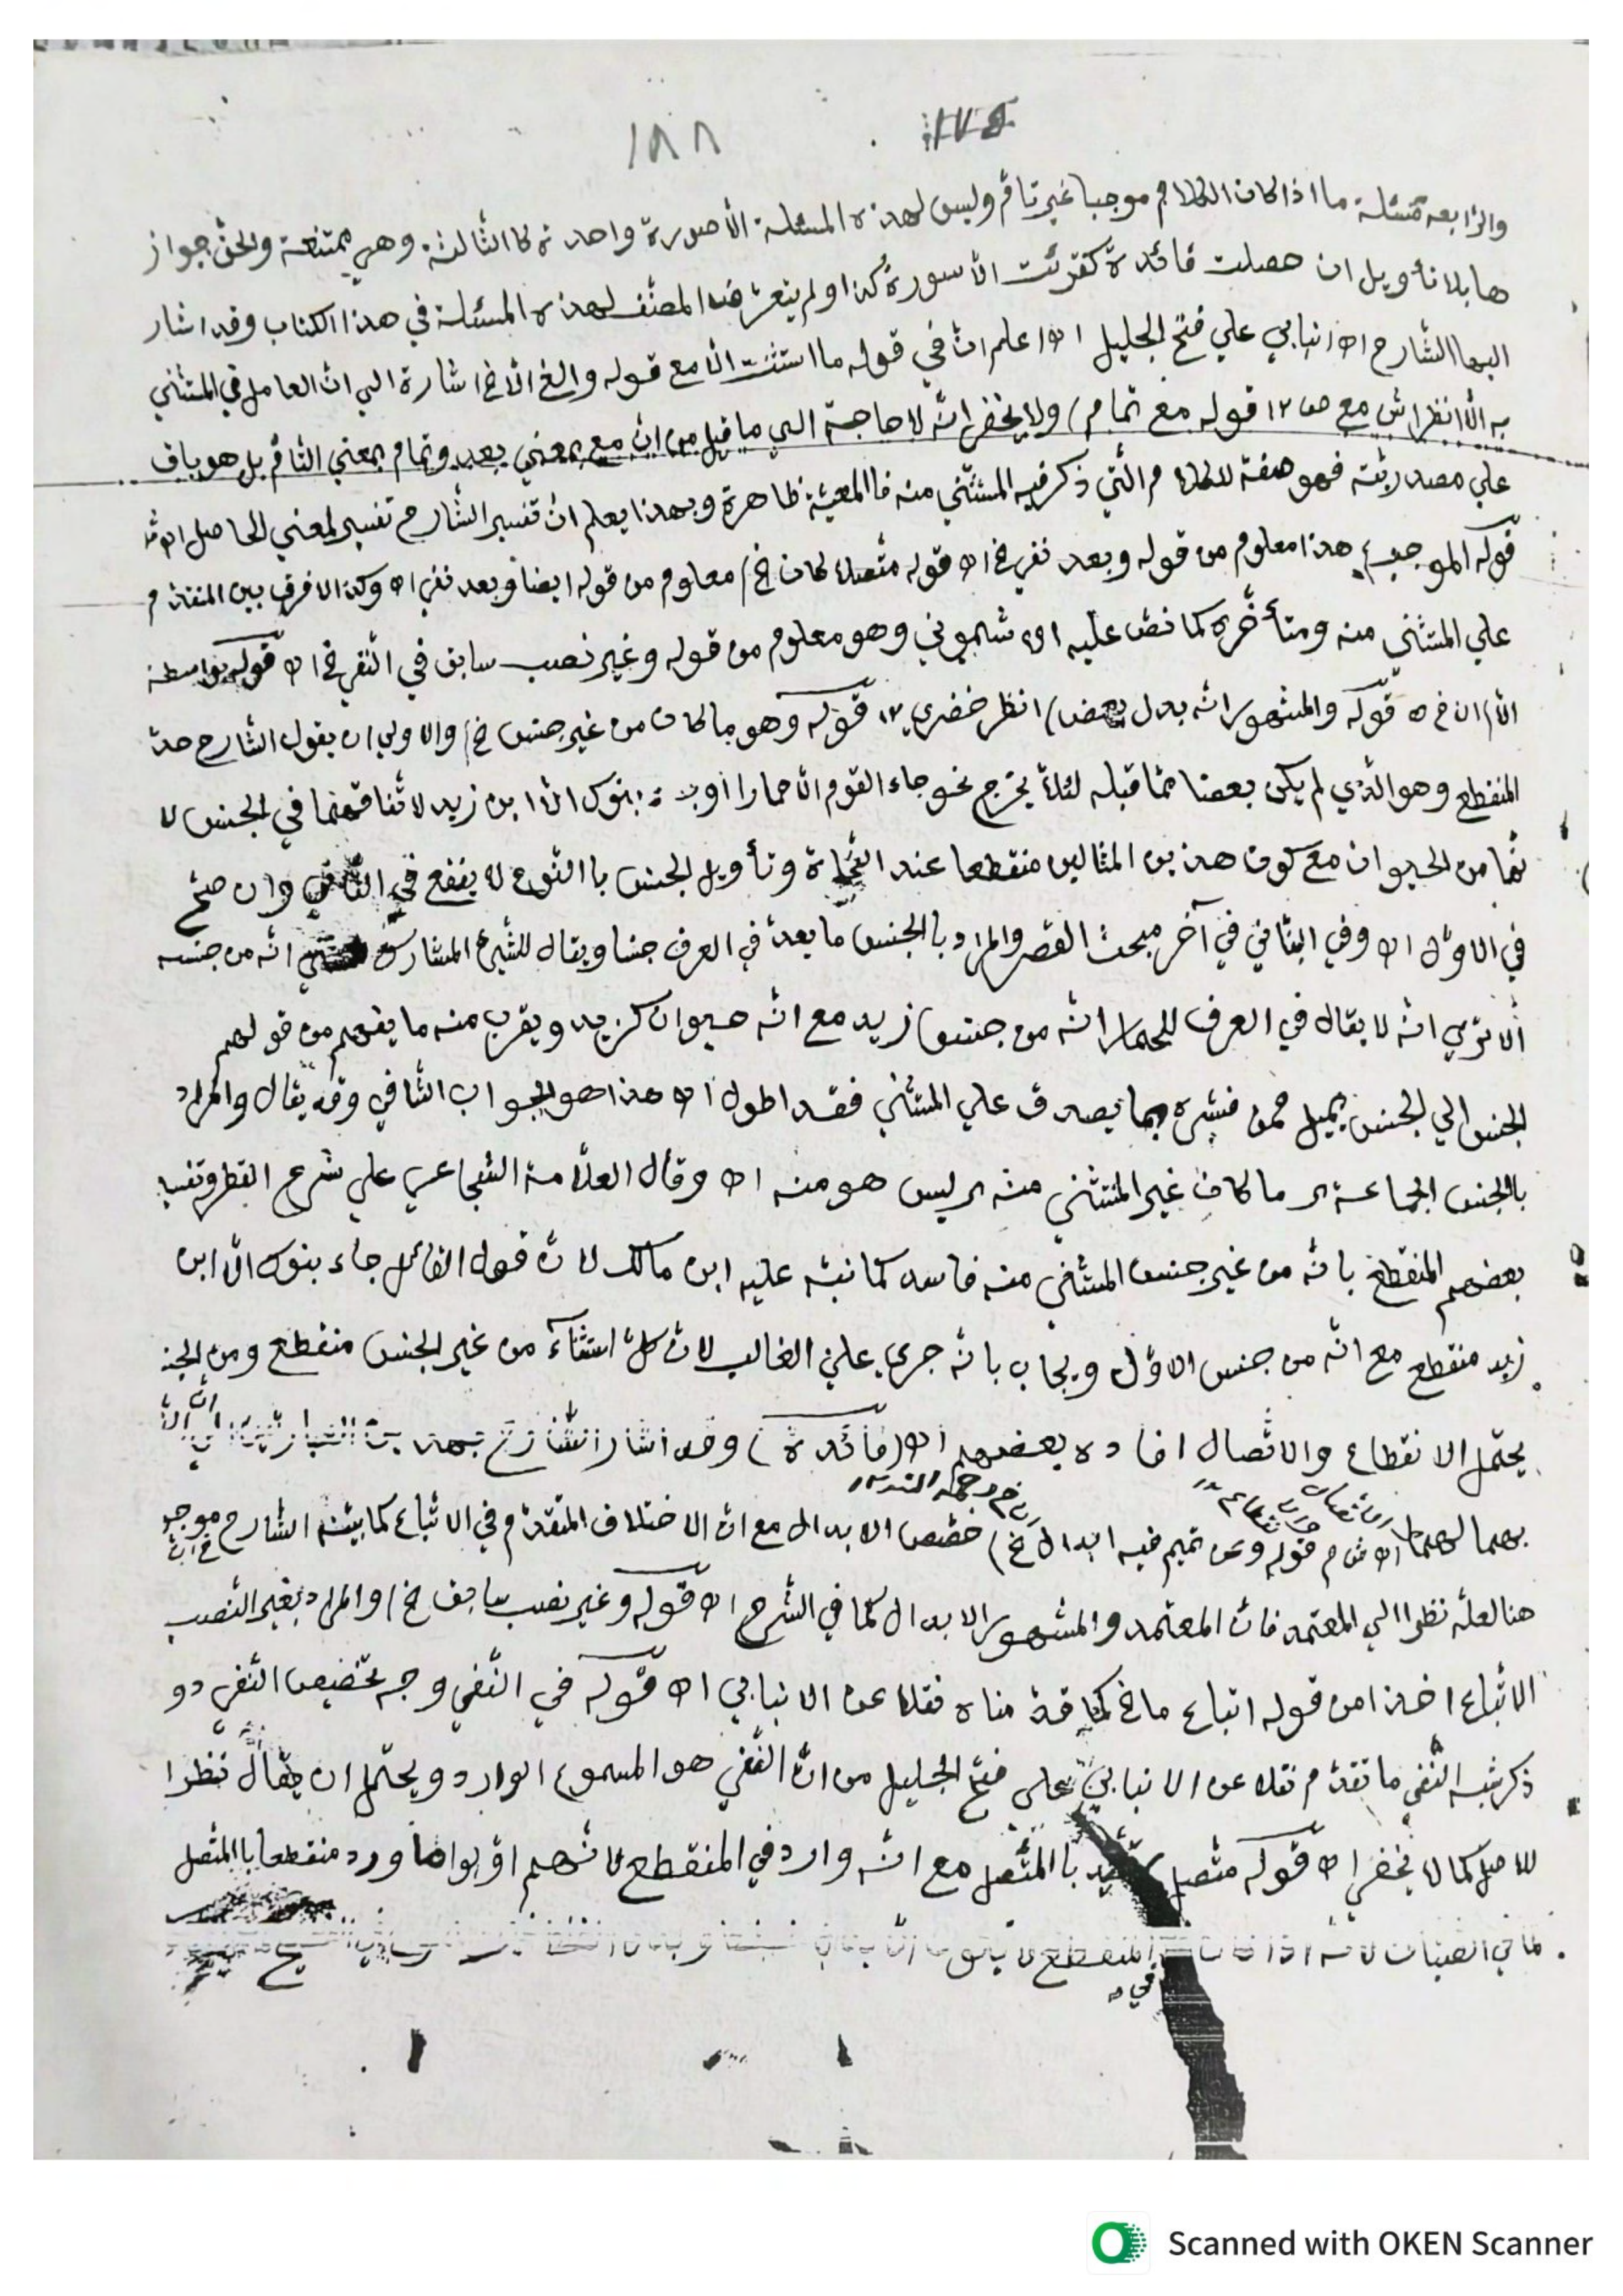 ١٨٨
والرابعه مسئلة ما اذا كان الكلام موجبا غير تام وليس لهذه المسئلة الا صورة واحدة كا الثالثة وهي ممتنعة والحق جواز
ها بلا تأويل ان حصلت فائدة كقرئت الا سورة كذا ولم يتعرض المصنف لهذه المسئلة في هذا الكتاب وقد اشار
اليها الشارح اه انبابي علي فتح الجليل اه اعلم ان في قوله ما استثنت الا مع قوله والغ الا خ اشارة الي ان العامل في المستثني
به الا انظر اش مع ص ١٢ قوله مع تمام) ولا يخفى انه لا حاجة الي ما قيل من ان مع بمعني بعد وتمام بمعني التام بل هو باق
علي مصدريته فهو صفة للكلام التي ذكر فيه المستثني منه فا المعية ظاهرة وبهذا يعلم ان تفسير الشارح تفسير لمعني الحاصل
قوله الموجب) هذا معلوم من قوله وبعد نفي خ اه قوله متصلا كان خ) معلوم من قوله ايضا وبعد نفي اه وكذا لا فرق بين المتقدم
علي المستثني منه ومتأخره كما نص عليه اشموني وهو معلوم من قوله وغير نصب سابق في النفي خ اه قوله بواسطة
الا) قوله والمشهور انه بدل بعض) انظر خضري ١٢ قوله وهو ما كان من غير جنس خ) والاولي ان يقول الشارح حد
المنقطع وهو الذي لم يكن بعضا مما قبله لئلا يخرج نحو جاء القوم الا حمارا او بنوك الا ابن زيد لا تفاقهما في الجنس لا
نهما من الحيوان مع كون هذين المثالين منقطعا عند النحاة وتأويل الجنس با النوع لا ينفع في الثاني وان صح
في الاول اه وفي البناني في آخر مبحث القصر والمراد با الجنس ما يعد في العرف جنسا ويقال للشيئ المشارك انه من جنسه
ألا تري انه لا يقال في العرف للحمار انه من جنس زيد مع انه حيوان كزيد ويقرب منه ما يفهم من قولهم
الجنس الي الجنس يميل فمن فسره بما يصدق علي المستثني فقد اطول اه هذا هو الجواب الثاني وقد يقال والمراد
بالجنس الجماعة ما كان غير المستثني منه ليس هو منه اه وقال العلامة الشجاعي علي شرح القطر وتفسير
بعضهم المنقطع بانه من غير جنس المستثني منه فاسد كما نبه عليه ابن مالك لان قول القائل جاء بنوك الا ابن
زيد منقطع مع انه من جنس الاول ويجاب بانه جري علي الغالب لان كل استثناء من غير الجنس منقطع ومن الجنـ
يحتمل الا نقطاع والاتصال افاده بعضهم اه (فائدة) وقد اشار الشارح
بهما لهما اه قوله وعن تميم فيه ابدال خ) خصص الابدال مع ان الاختلاف المتقدم في الاتباع كما بينه الشارح موجو
هنا لعله نظرا الي المعتمد فان المعتمد والمشهور الابدال كما في الشرح اه قوله وغير نصب سابق خ) والمراد بغير النصب
الاتباع اخذا من قوله اتباع ما خ كما قدمناه نقلا عن الانبابي اه قوله في النفي وجه تخصيص النفي دو
ذكر شبه النفي ما تقدم نقلا عن الانبابي علي فتح الجليل من ان النفي هو المسموع الوارد ويحتمل ان يقال نظرا
للاصل كما لا يخفى اه قوله متصل با المتصل مع انه وارد في المنقطع لانهم اولوا ما ورد منقطعا با المتصل
كما في الصبان لانه اذا المنقطع
في
Scanned with OKEN Scanner